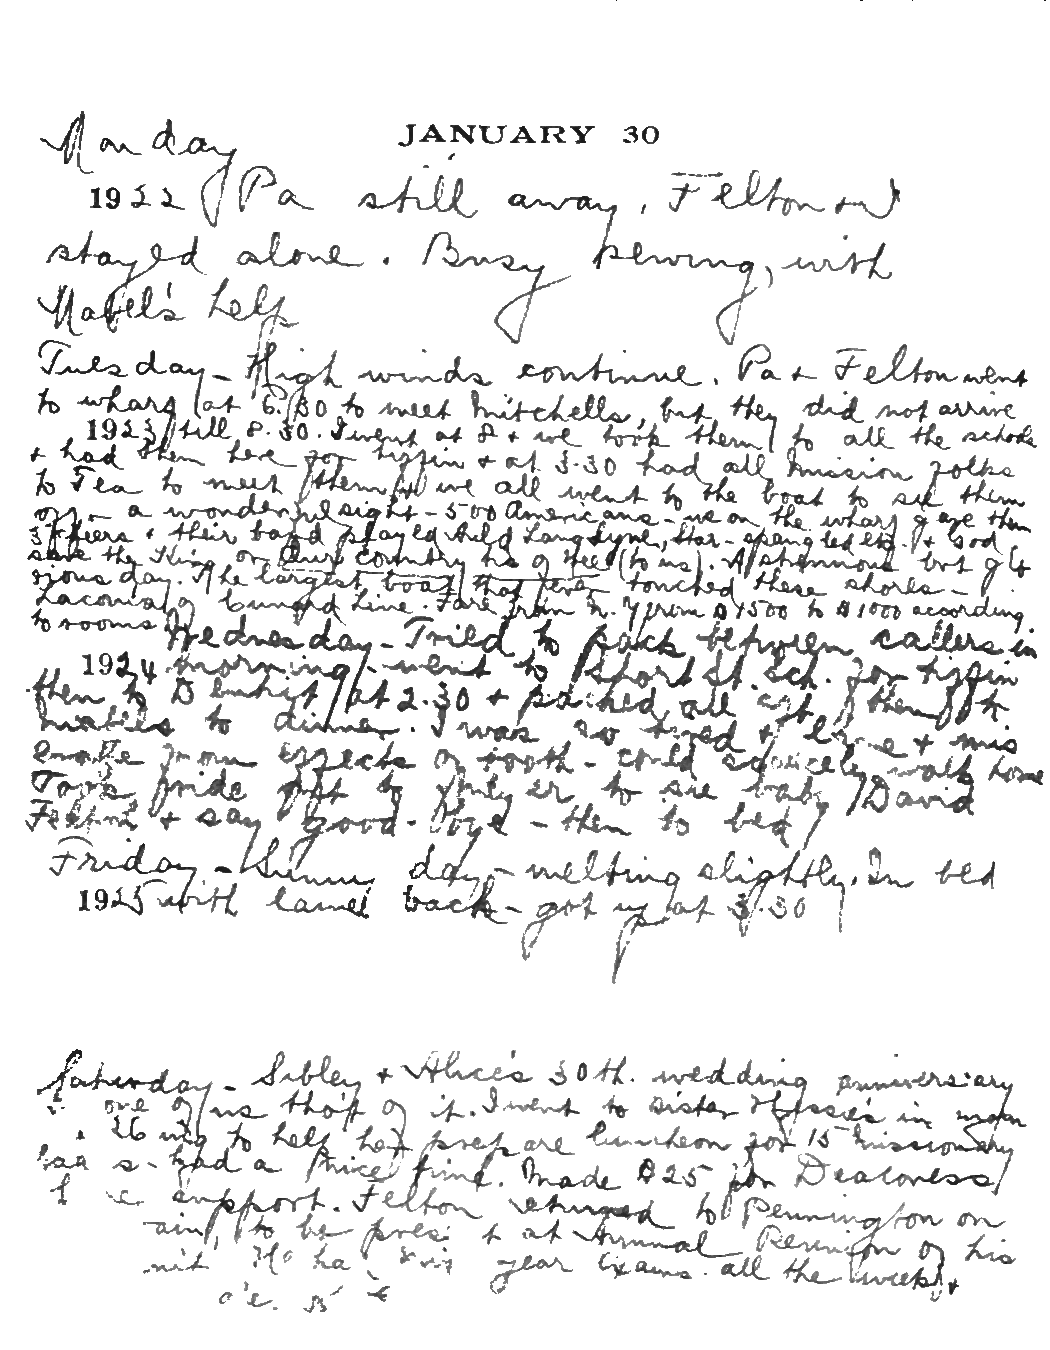 JANUARY 30
Monday
1922 Pa still away, Felton & I
stayed alone. Busy sewing, with
Mabel's help
Tuesday - High winds continue. Pa & Felton went
to wharf at 6.30 to meet Mitchells, but they did not arrive
1923 till 8.30. I went at 8 & we took them to all the schools
& had them here for tiffin & at 3.30 had all mission folks
to Tea to meet them & we all went to the boat to see them
off - a wonderful sight - 500 Americans - us on the wharf gave them
3 cheers & their band played Auld Lang Syne, Star-spangled etc. & God
save the King or Our country tis of thee (to us). A strenuous but glo-
rious day. The largest boat that ever touched these shores -
Laconia of Cunard Line. Fare from N.Y from $1500 to $1000 according
to rooms
Wednesday - Tried to pack between callers in
1924 morning - went to Short St. Sch. for tiffin
then to at 2.30 & packed all then to
Mabels to dinner. I was so tired & &
from effects of tooth - could scarcely walk home
Took ride to to see baby David
Felton & say good-bye - then to bed
Friday - Sunny day - melting slightly. In bed
1925 with lame back - got up at 3.30
Saturday - Sibley & Alice's 30th. wedding anniversary
one of us tho't of it. I went to sister in morn
26 ing to help her prepare luncheon for 15 missionary
had a nice time. Made $25 for Deaconess
support. Felton returned to Pennington on
to be at Annual Reunion of his
year Exams. all the week, &